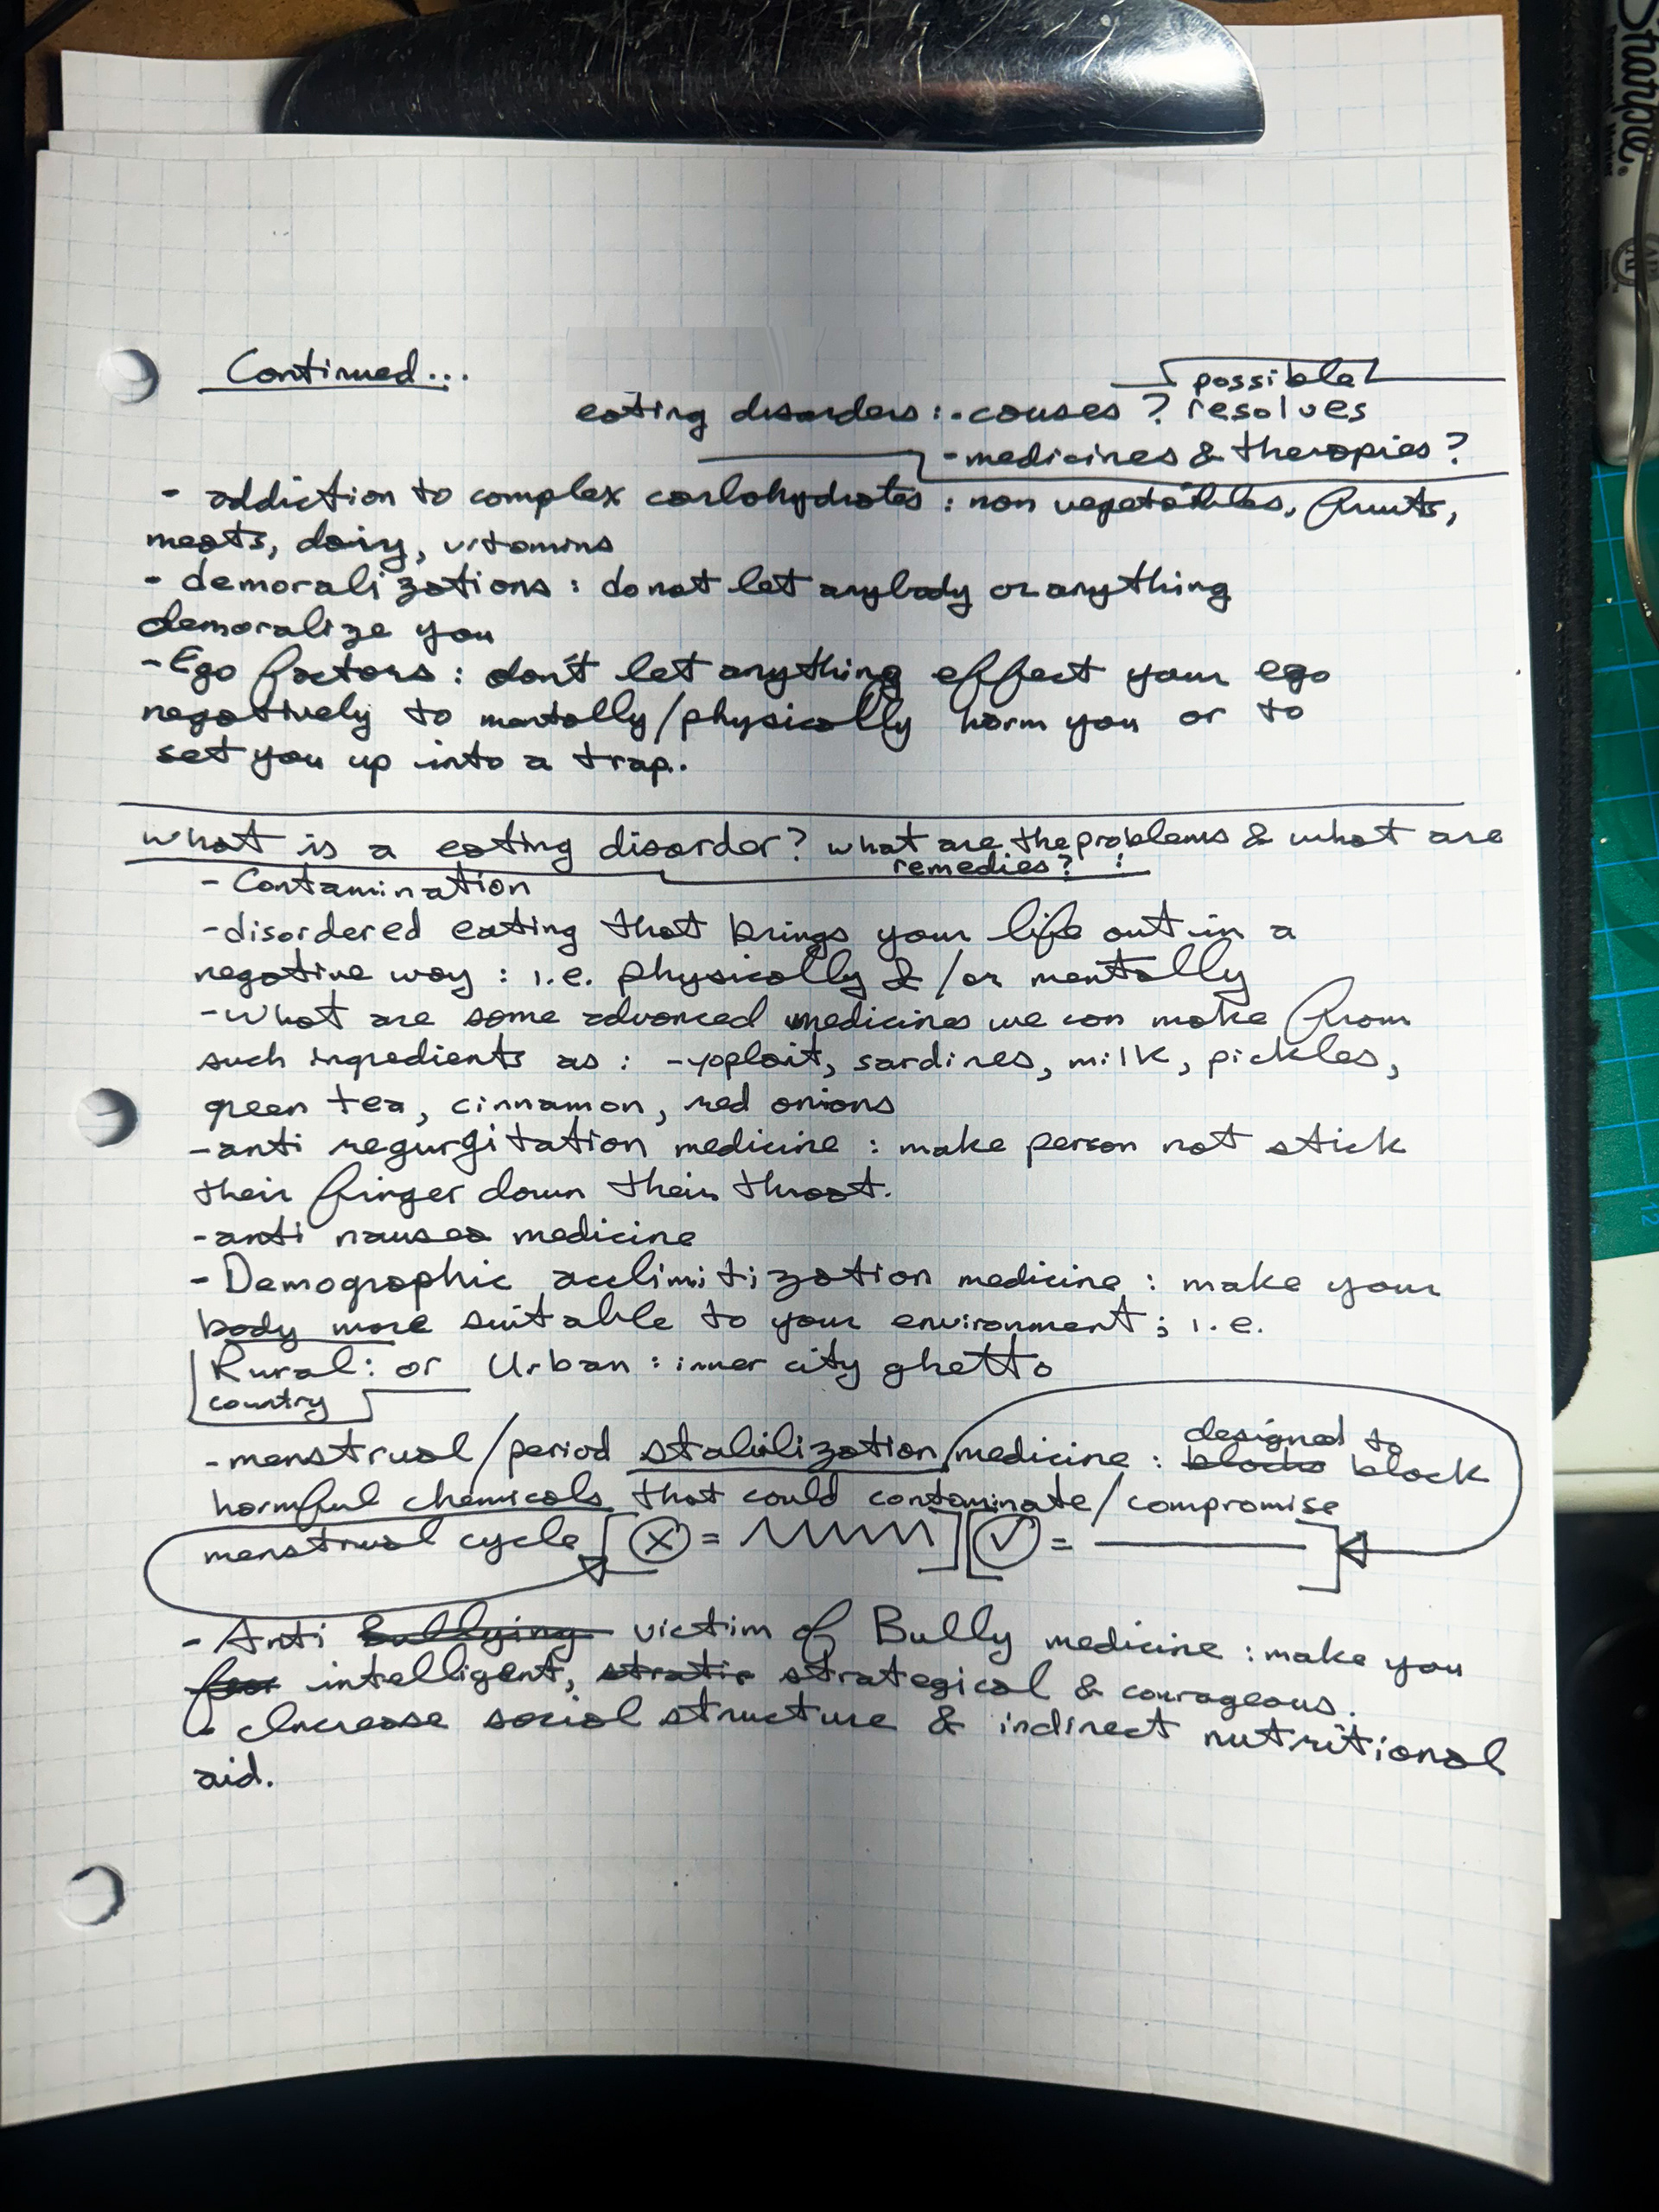 Continued...
possible
eating disorders : - causes ? resolves
- medicines & therapies ?
- addiction to complex carbohydrates : non vegetables, fruits,
meats, dairy, vitamins
- demoralizations : do not let anybody or anything
demoralize you
- Ego factors : don't let anything effect your ego
negatively to mentally/physically harm you or to
set you up into a trap.
What is a eating disorder? what are the problems & what are
remedies? :
- Contamination
- disordered eating that brings your life out in a
negative way : i.e. physically & /or mentally
- What are some advanced medicines we can make from
such ingredients as : - yoplait, sardines, milk, pickles,
green tea, cinnamon, red onions
- anti regurgitation medicine : make person not stick
their finger down their throat.
- anti nausea medicine
- Demographic acclimitization medicine : make your
body more suitable to your environment ; i.e.
Rural : or Urban : inner city ghetto
country
designed to
- menstrual/period stabilization medicine : blocks block
harmful chemicals that could contaminate/compromise
menstrual cycle [ X = ] [ ✓ = ]
- Anti Bullying victim of Bully medicine : make you
for intelligent, stratis strategical & courageous.
- Increase social structure & indirect nutritional
aid.
Sharpie.
12